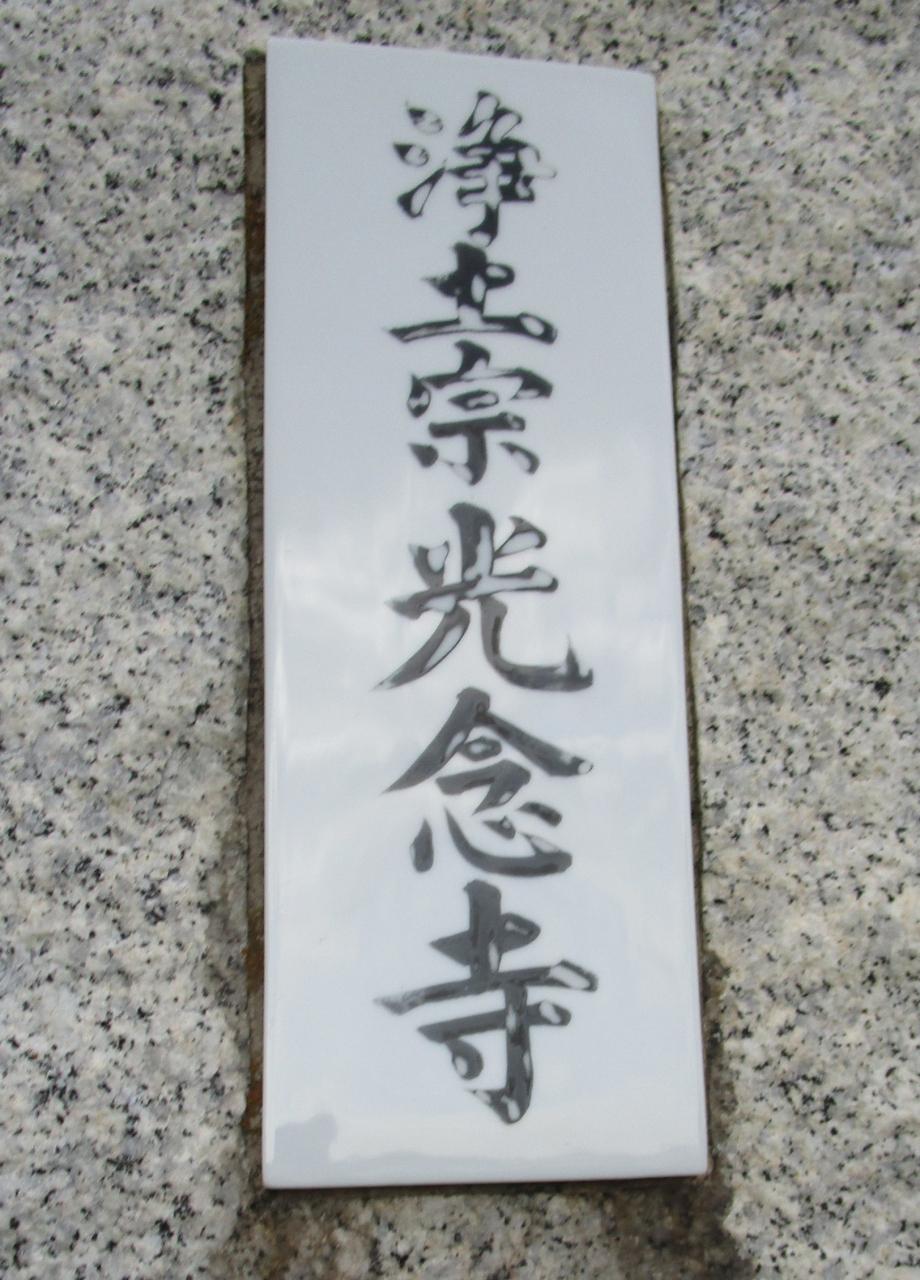 浄土宗光念寺